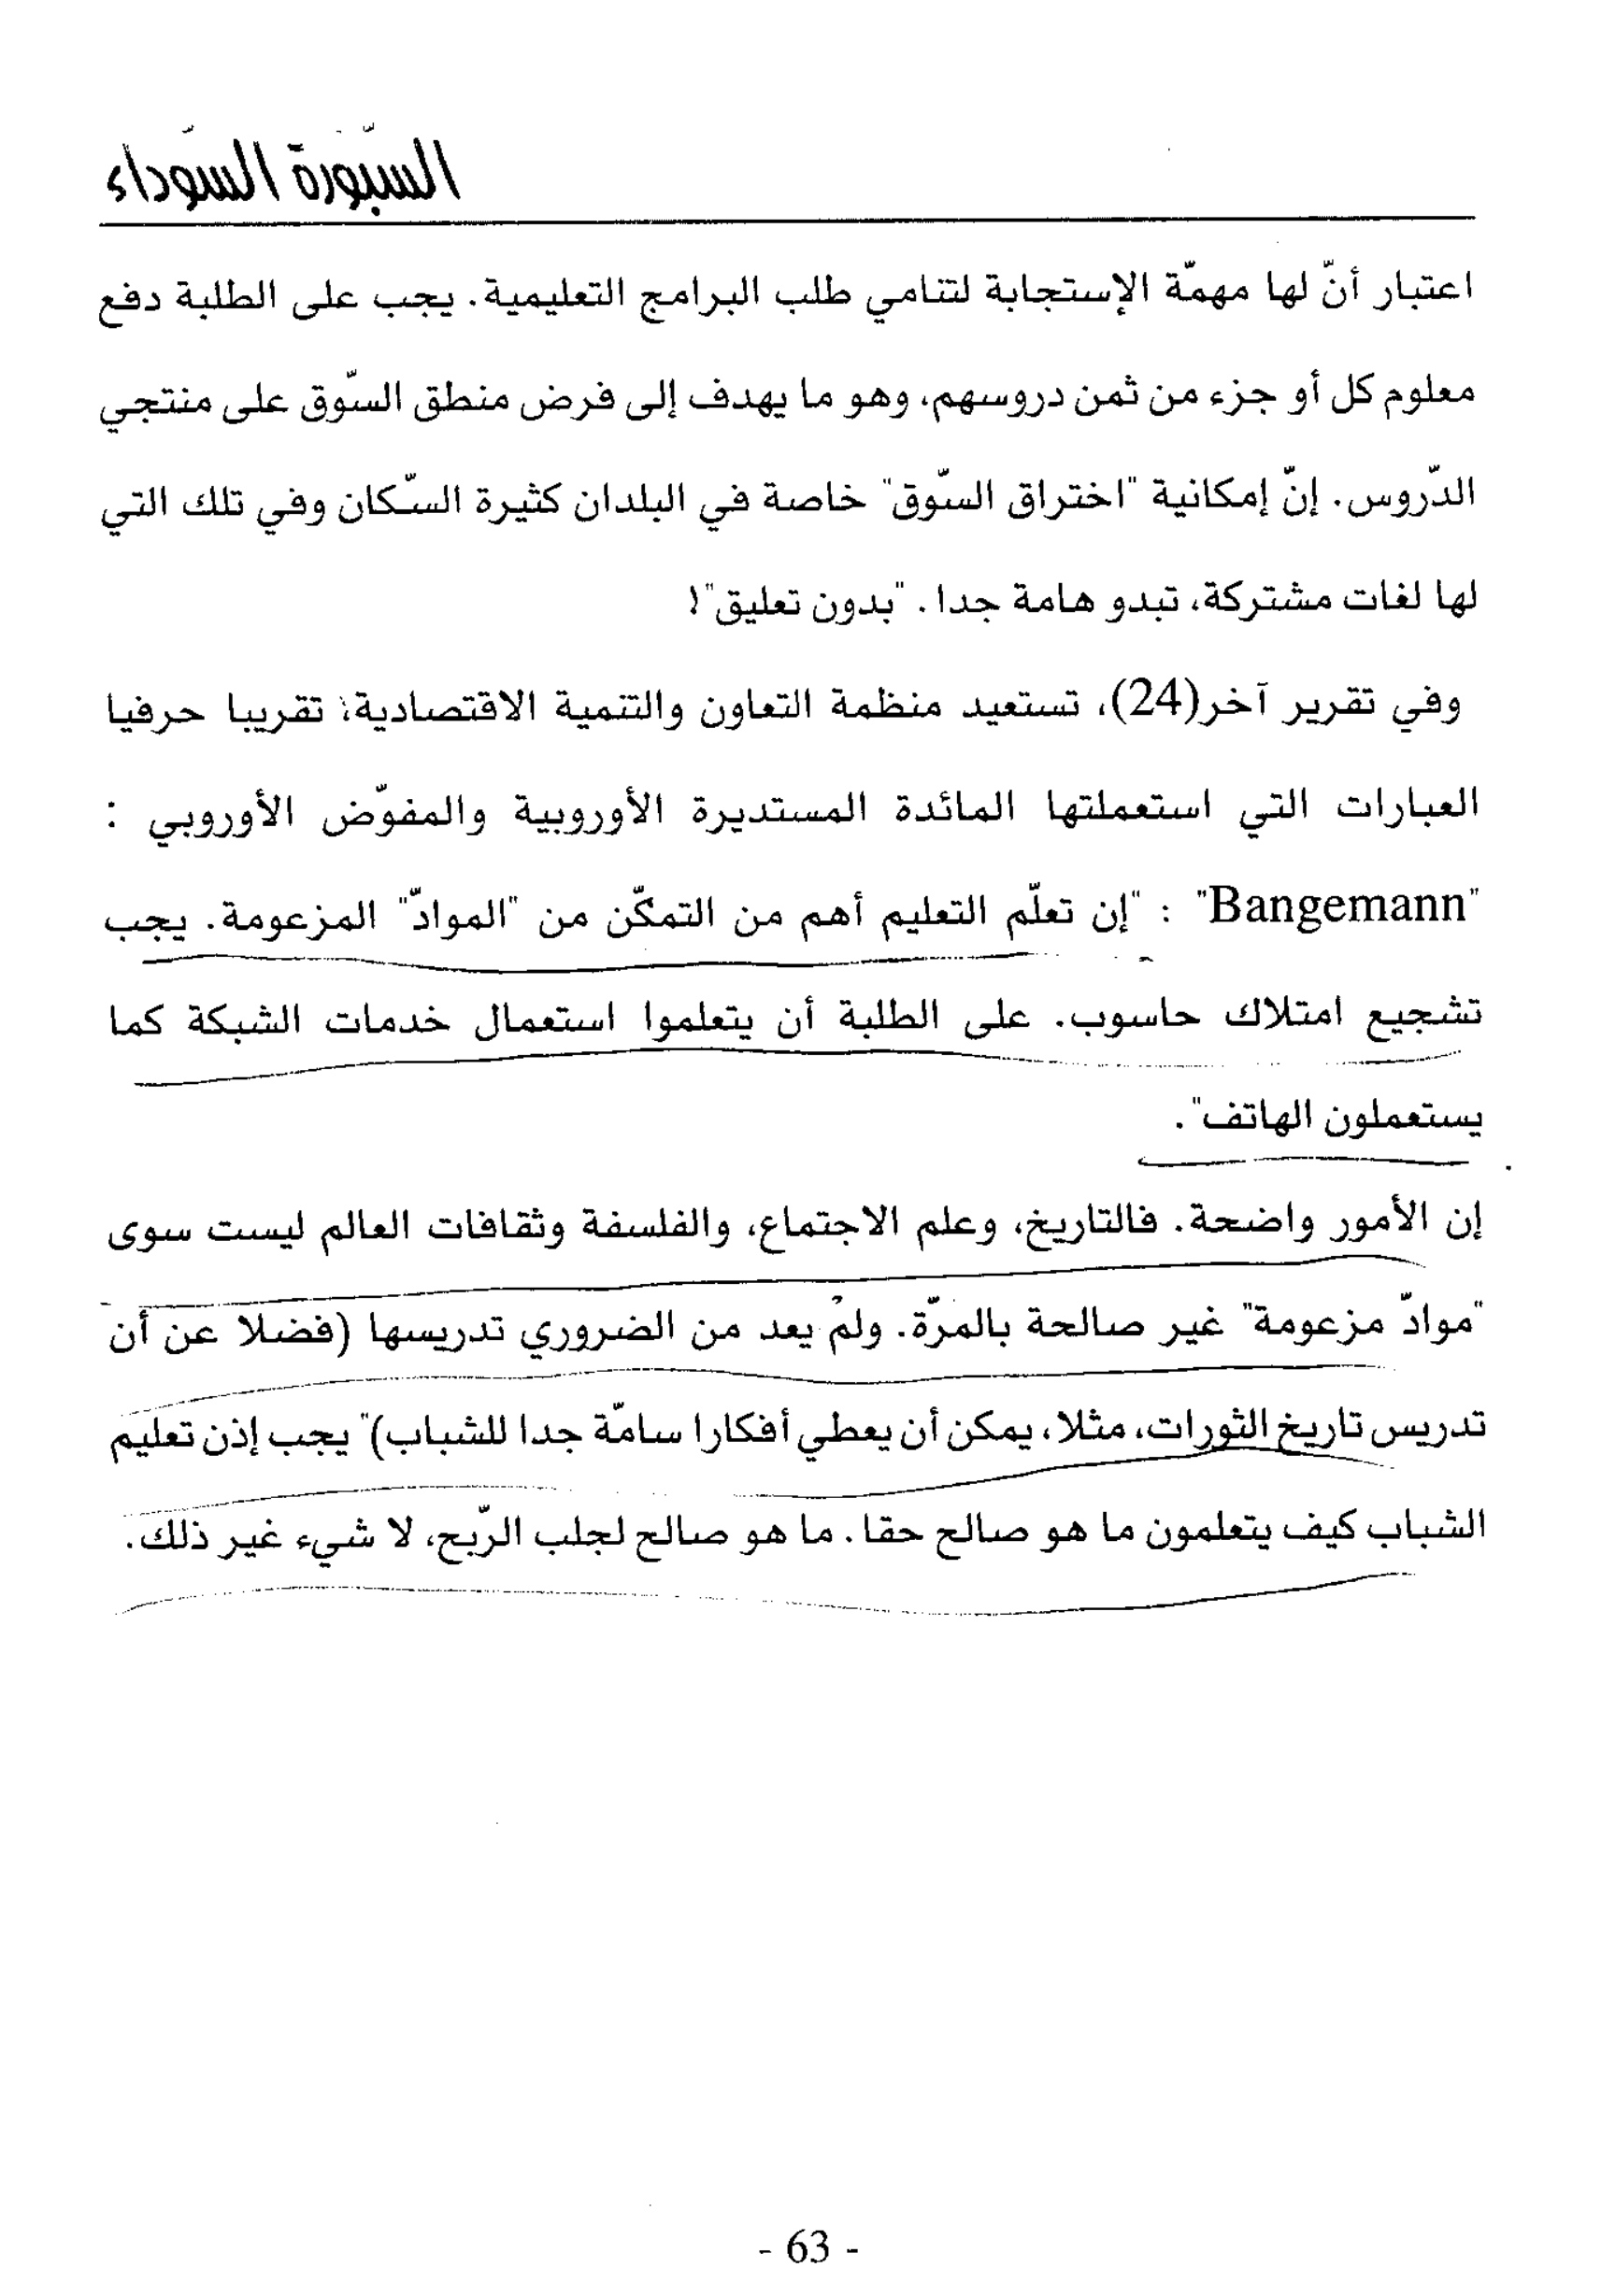 السبّورة السّوداء
اعتبار أنّ لها مهمّة الإستجابة لتنامي طلب البرامج التعليمية. يجب على الطلبة دفع
معلوم كل أو جزء من ثمن دروسهم، وهو ما يهدف إلى فرض منطق السّوق على منتجي
الدّروس. إنّ إمكانية "اختراق السّوق" خاصة في البلدان كثيرة السّكان وفي تلك التي
لها لغات مشتركة، تبدو هامة جدا. "بدون تعليق"!
وفي تقرير آخر(24)، تستعيد منظمة التعاون والتنمية الاقتصادية؛ تقريبا حرفيا
العبارات التي استعملتها المائدة المستديرة الأوروبية والمفوّض الأوروبي :
"Bangemann" : "إن تعلّم التعليم أهم من التمكّن من "الموادّ" المزعومة. يجب
تشجيع امتلاك حاسوب. على الطلبة أن يتعلموا استعمال خدمات الشبكة كما
يستعملون الهاتف".
إن الأمور واضحة. فالتاريخ، وعلم الاجتماع، والفلسفة وثقافات العالم ليست سوى
"موادّ مزعومة" غير صالحة بالمرّة. ولم يعد من الضروري تدريسها (فضلا عن أن
تدريس تاريخ الثورات، مثلا، يمكن أن يعطي أفكارا سامّة جدا للشباب)" يجب إذن تعليم
الشباب كيف يتعلمون ما هو صالح حقا. ما هو صالح لجلب الرّبح، لا شيء غير ذلك.
- 63 -